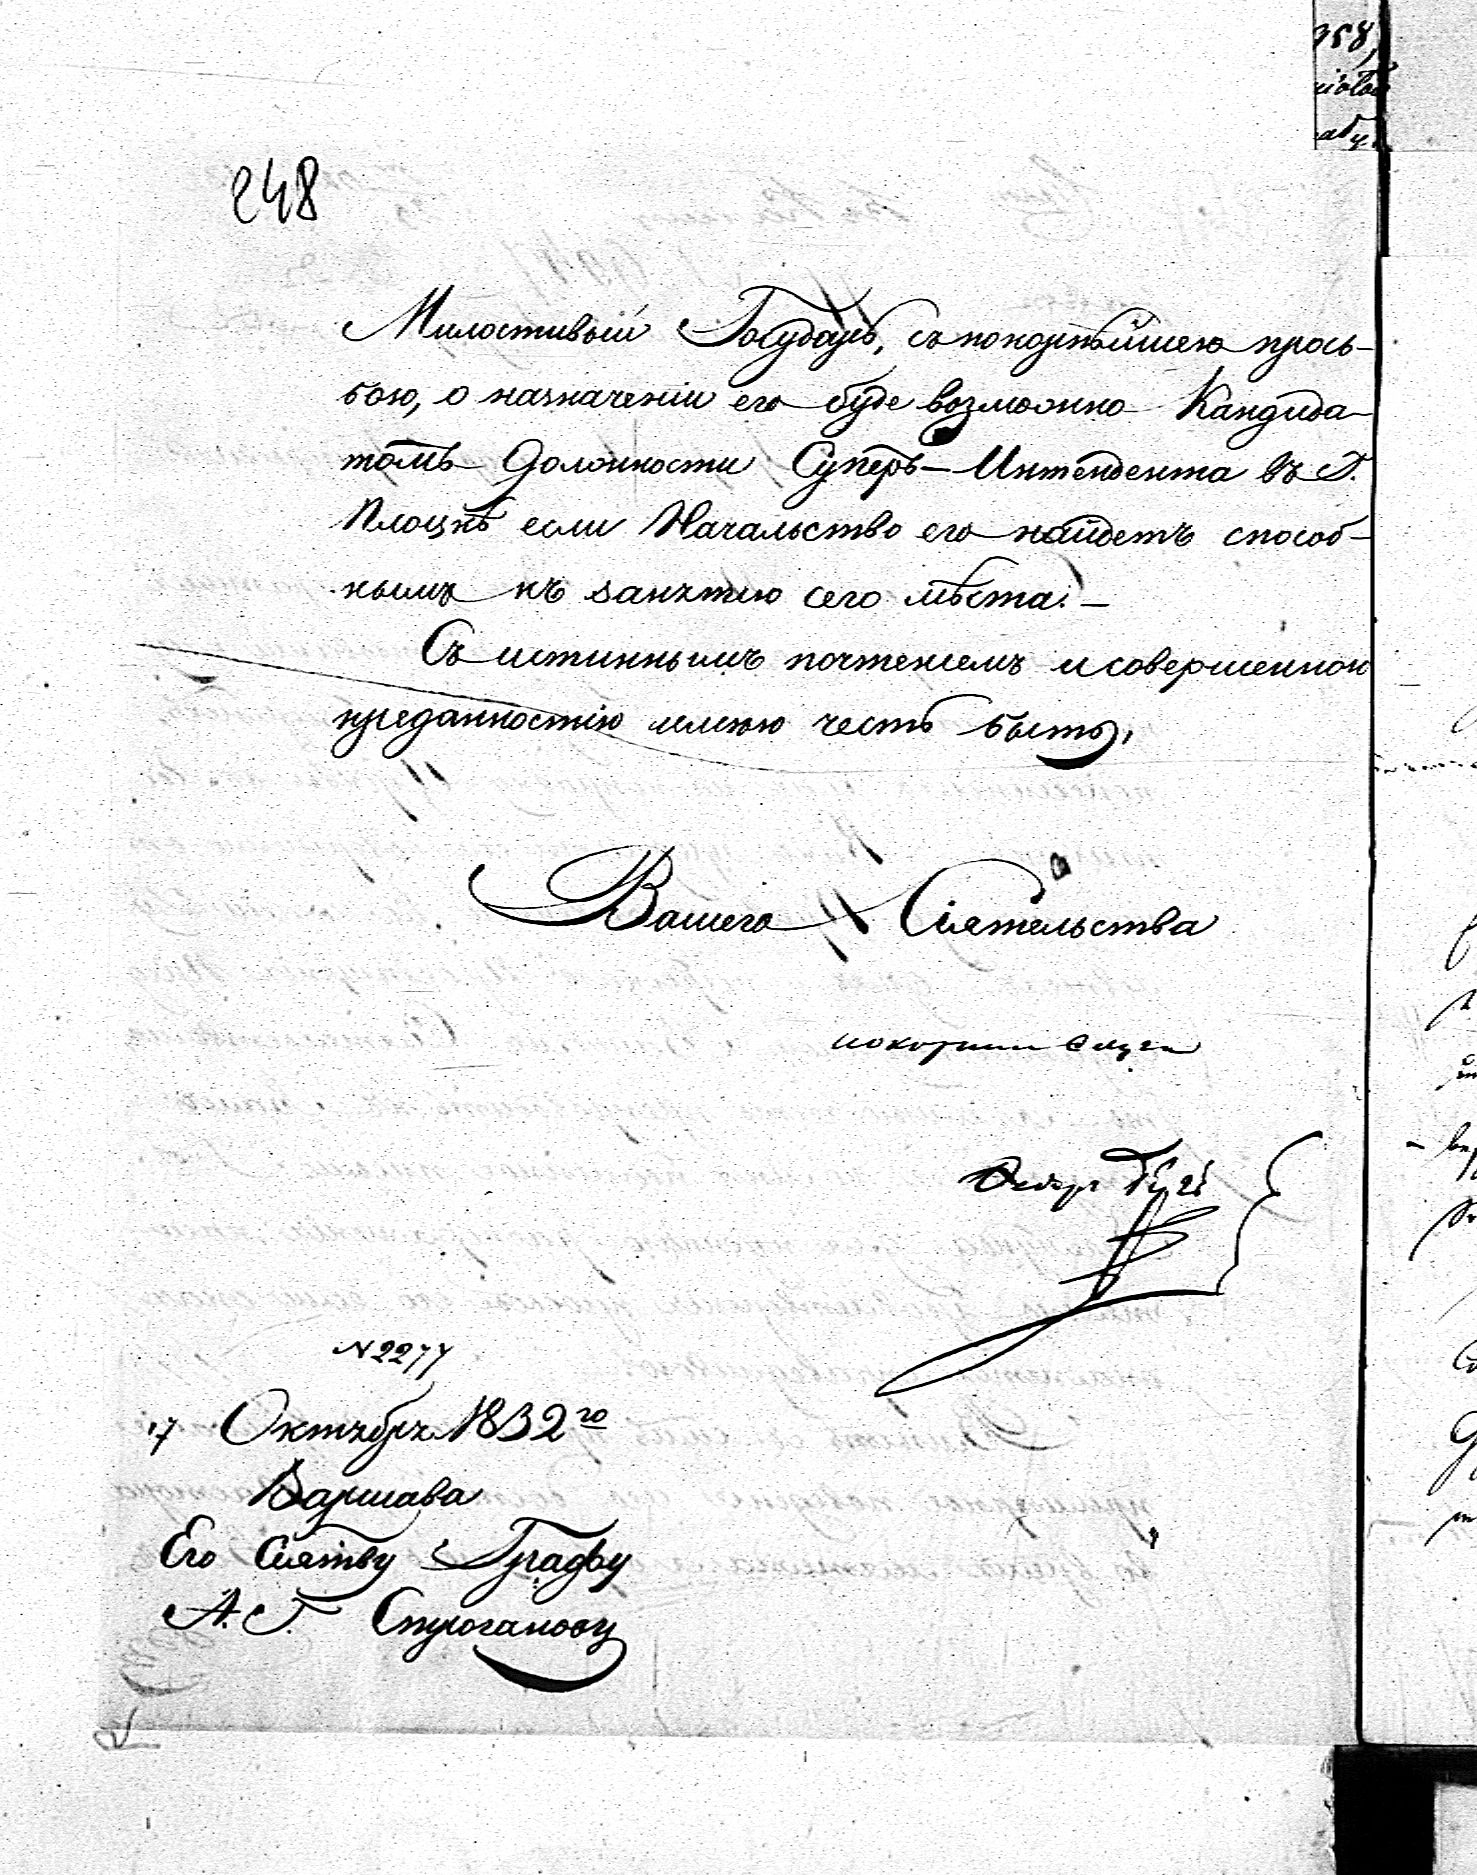 248
Милостивый Государь, съ покорнѣйшею прозь-
бою, о назначеніи его буде возможно Кандида-
томъ Должности Суперъ-Интендента въ Г.
Плоцкѣ если Начальство его найдетъ способ-
нымъ къ занятію сего мѣста. —
Съ истиннымъ почтеніемъ и совершенною
преданностію имѣю честь быть,
Вашего Сіятельства
покорный слуга
N 2277
17 Октября 1832го
Варшава
Его Сіятву Графу
А. Г. Строганову